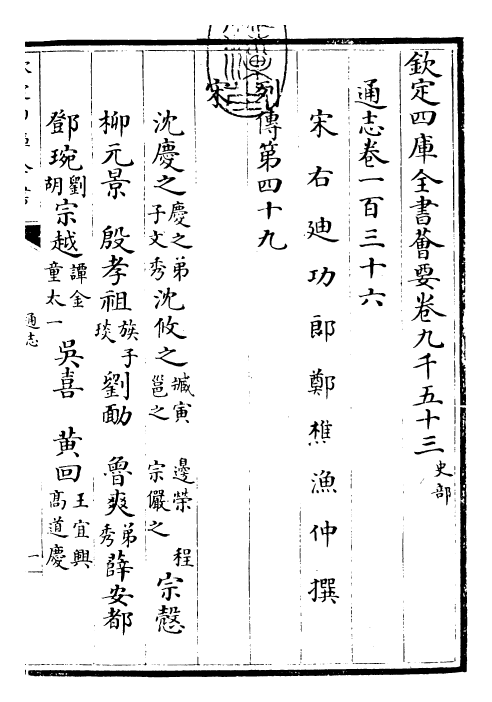 欽定四庫全書薈要卷九千五十三 史部
通志卷一百三十六
宋右迪功郎鄭樵漁仲撰
列傳第四十九
宋
沈慶之 慶之弟子文秀 沈攸之 臧寅 邊榮 程邕之 宗儼之 宗慤
柳元景 殷孝祖 族子琰 劉勔 魯爽 弟秀 薛安都
鄧琬 劉胡 宗越 譚金 童太一 吳喜 黃回 王宜興 高道慶
通志
一